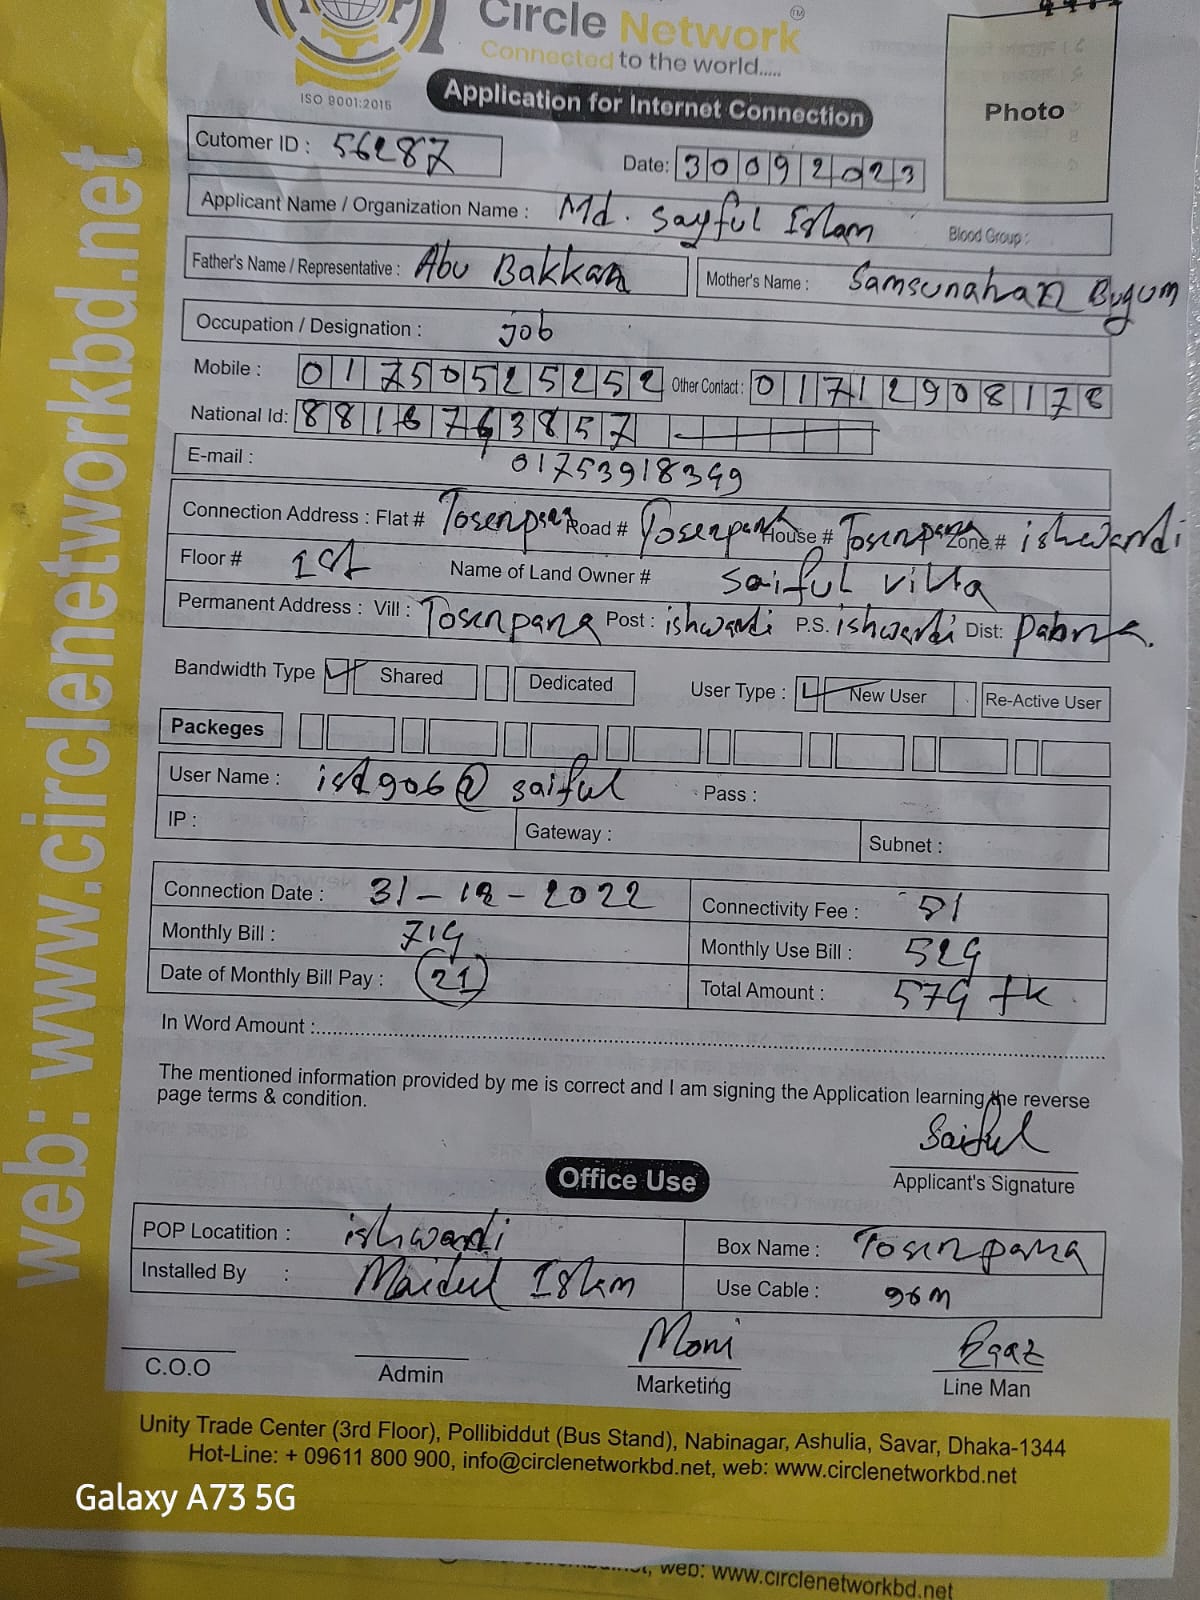 Circle Network TM
Connected to the world.....
ISO 9001:2015
Application for Internet Connection
Photo
Cutomer ID : 56287
Date: 30092023
Applicant Name / Organization Name : Md. Sayful Islam Blood Group :
Father's Name / Representative : Abu Bakkar Mother's Name : Samsunahar Bugum
Occupation / Designation : job
Mobile : 01750525252 Other Contact : 01712908178
National Id: 8816763857
E-mail : 01753918349
Connection Address : Flat # Tosenpara Road # Tosenpara House # Tosenpara Zone # ishwardi
Floor # 1st Name of Land Owner # Saiful villa
Permanent Address : Vill : Tosenpara Post : ishwardi P.S. ishwardi Dist: Pabna.
Bandwidth Type Shared Dedicated User Type : New User Re-Active User
Packeges
User Name : isd906@saiful Pass :
IP : Gateway : Subnet :
Connection Date : 31-12-2022 Connectivity Fee : 51
Monthly Bill : 719 Monthly Use Bill : 529
Date of Monthly Bill Pay : 21 Total Amount : 579 tk
In Word Amount :
The mentioned information provided by me is correct and I am signing the Application learning the reverse
page terms & condition.
Saiful
Applicant's Signature
Office Use
POP Locatition : ishwardi Box Name : Tosenpara
Installed By : Maidul Islam Use Cable : 96m
Moni
C.O.O Admin Marketing Line Man
Unity Trade Center (3rd Floor), Pollibiddut (Bus Stand), Nabinagar, Ashulia, Savar, Dhaka-1344
Hot-Line: + 09611 800 900, info@circlenetworkbd.net, web: www.circlenetworkbd.net
web: www.circlenetworkbd.net
Galaxy A73 5G
web: www.circlenetworkbd.net